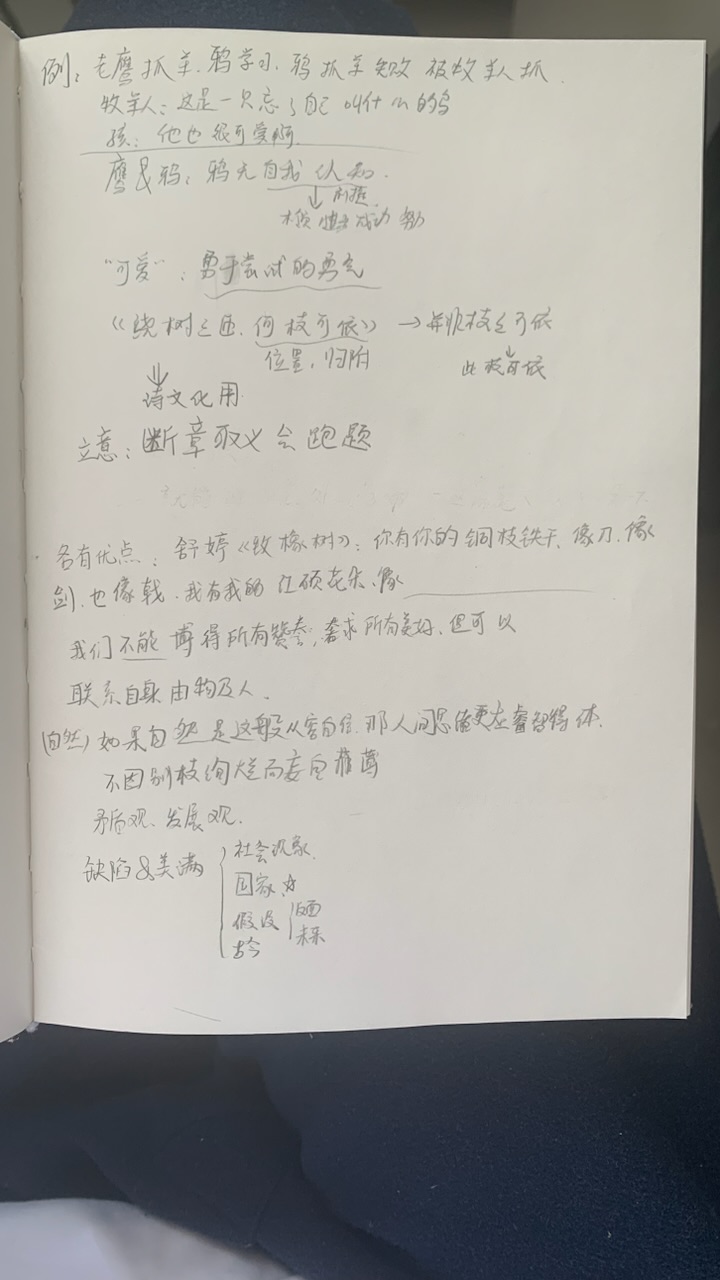 例：老鹰抓羊.鸦学习.鸦抓羊失败 被牧羊人抓.
牧羊人：这是一只忘了自己叫什么的鸟
孩：他也很可爱啊.
鹰&鸦：鸦无自我认知.
↓ 前提
成功
"可爱"：勇于尝试的勇气
《绕树三匝.何枝可依》→ 枝可依
位置，归附
此枝可依
诗文化用
立意：断章取义会跑题
各有优点：舒婷《致橡树》：你有你的铜枝铁干、像刀、像
剑、也像戟.我有我的红硕花朵、像
我们不能博得所有赞誉，奢求所有美好、但可以
联系自身由物及人.
(自然)如果自然是这般从容自信.那人间总值更在睿智得体.
不因别枝绚烂而妄自菲薄
矛盾观、发展观.
缺陷&美满
社会现象
国家
假设 反面
未来
古今